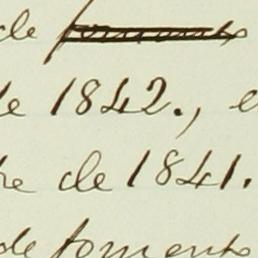 de fomento
de 1842., e
bre de 1841.
de fomento